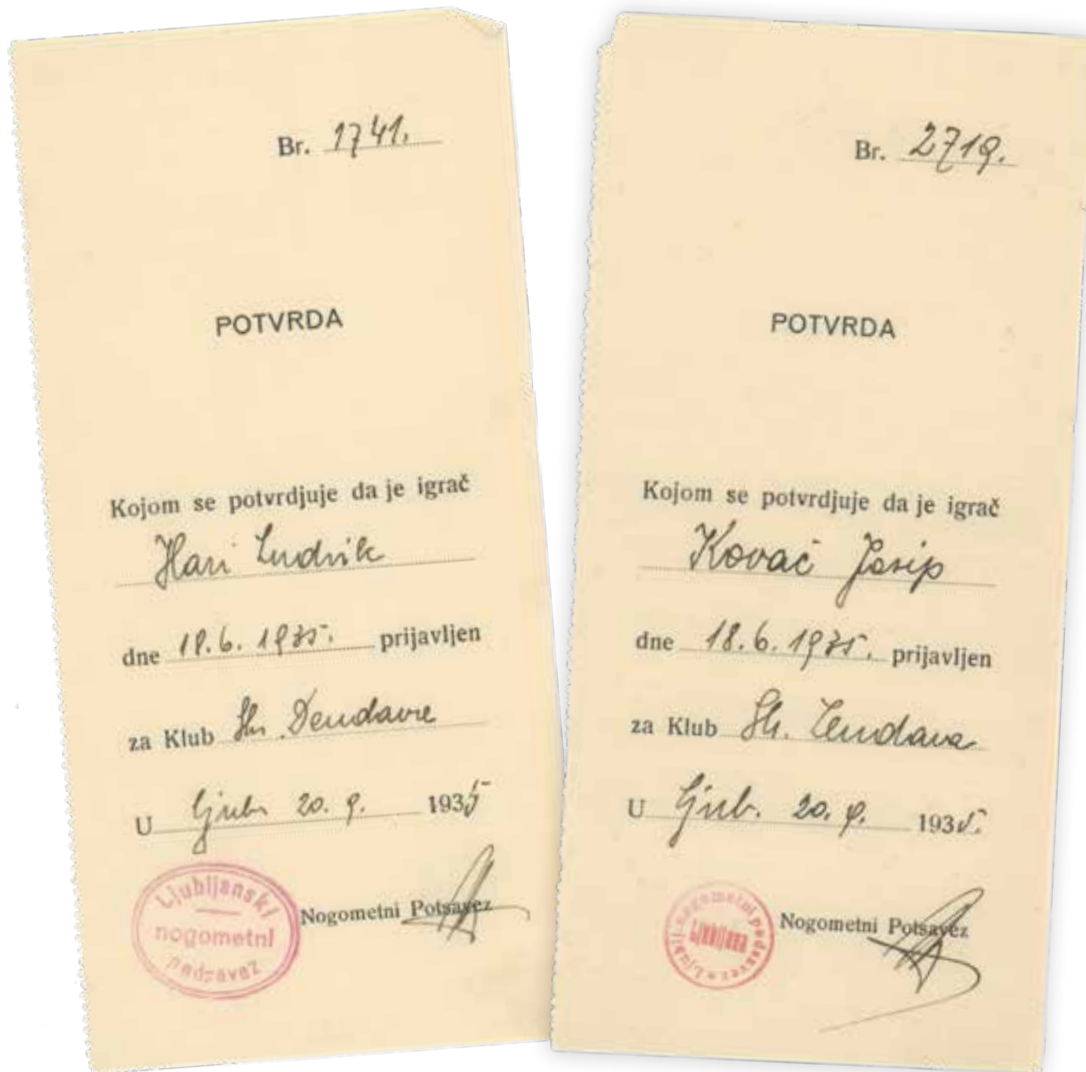 Br. 1741.
POTVRDA
Kojom se potvrdjuje da je igrač
Hari Ludvik
dne 18.6. 1935. prijavljen
za Klub Sk. Lendava
U Ljub. 20. 9. 1935
Ljubljanski
nogometni
podsavez
Nogometni Potsavez
Br. 2719.
POTVRDA
Kojom se potvrdjuje da je igrač
Kovač Josip
dne 18.6. 1935. prijavljen
za Klub Sk. Lendava
U Ljub. 20. 9. 1935.
Ljublj. nogometni podsavez
Ljubljana
Nogometni Potsavez